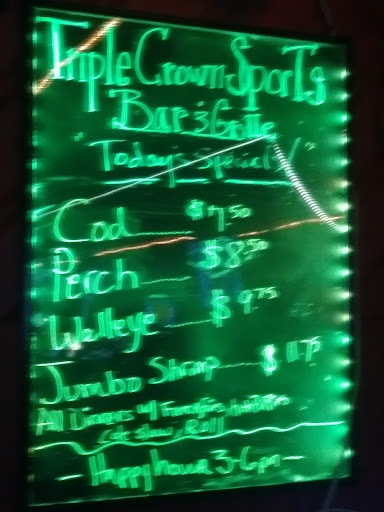 Triple Crown Sports
Bar & Grille
"Today's Specials"
Cod $7.50
Perch $8.50
Walleye $9.75
Jumbo Shrimp $11.75
All Dinners w/
Cole Slaw & Roll
Happy hour 3-6pm